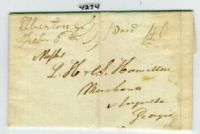 4274
Elberton Ga
Feb 6
Paid
Messrs
L. H & S. Hamilton
Merchants
Augusta
Georgia